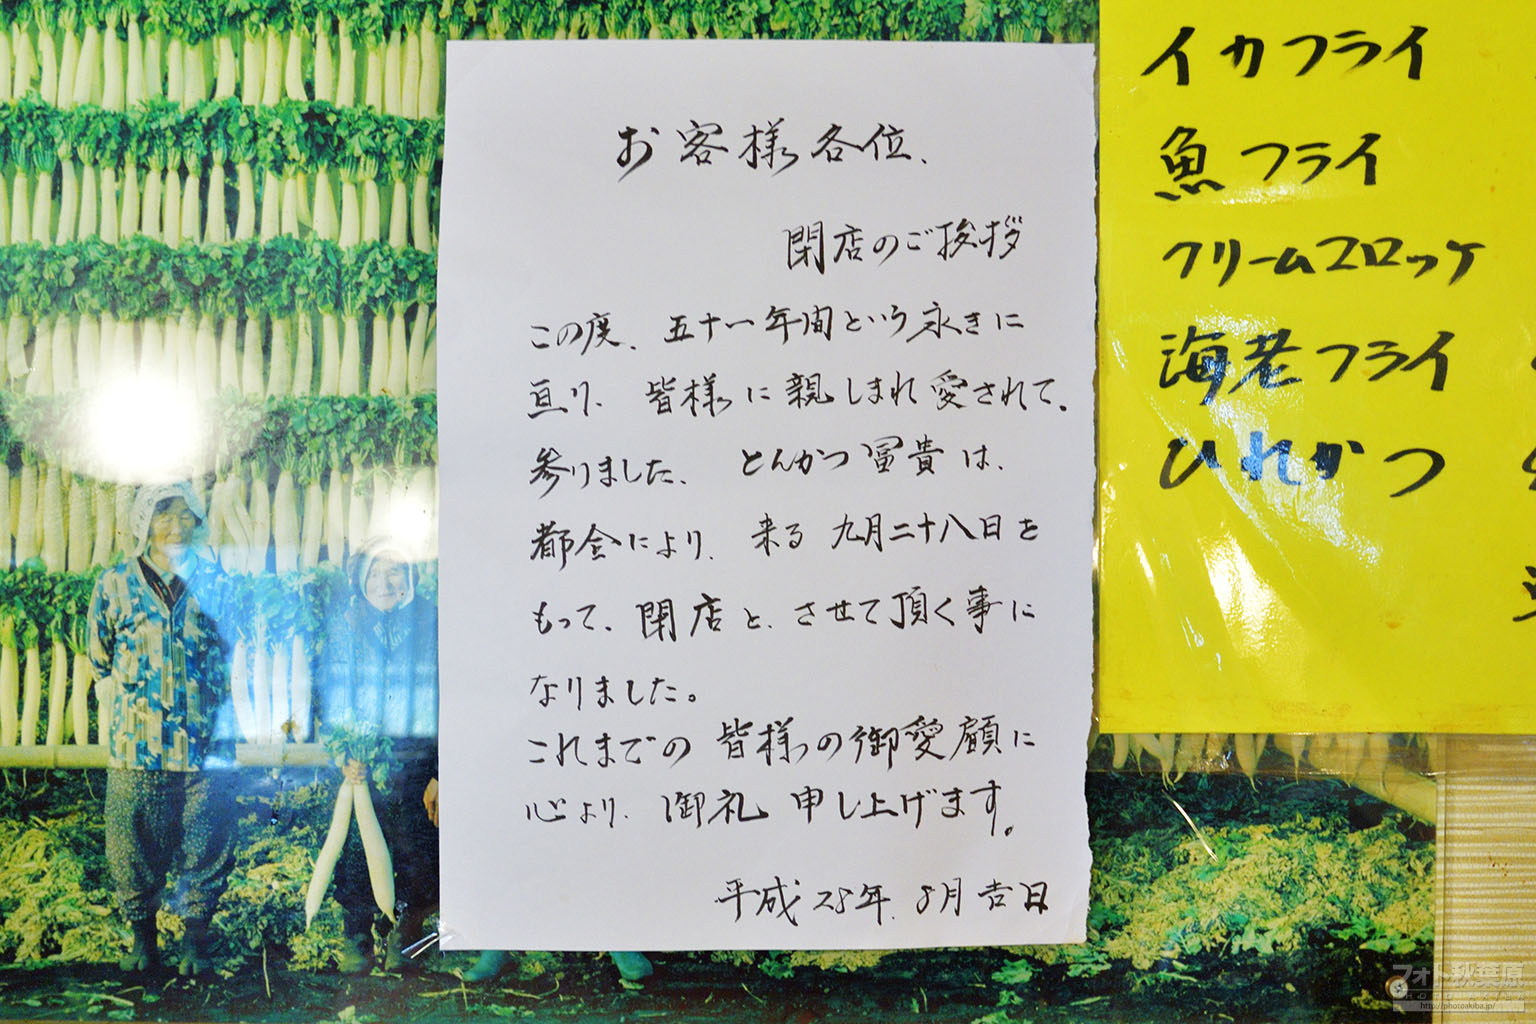 お客様各位、
閉店のご挨拶
この度、五十一年間という永きに
亘り、皆様に親しまれ愛されて、
参りました、とんかつ冨貴は、
都合により、来る九月二十八日を
もって、閉店と、させて頂く事に
なりました。
これまでの皆様の御愛顧に
心より、御礼申し上げます。
平成28年、8月吉日
イカフライ
魚フライ
クリームコロッケ
海老フライ
ひれかつ
フォト秋葉原
http://photoakiba.jp/